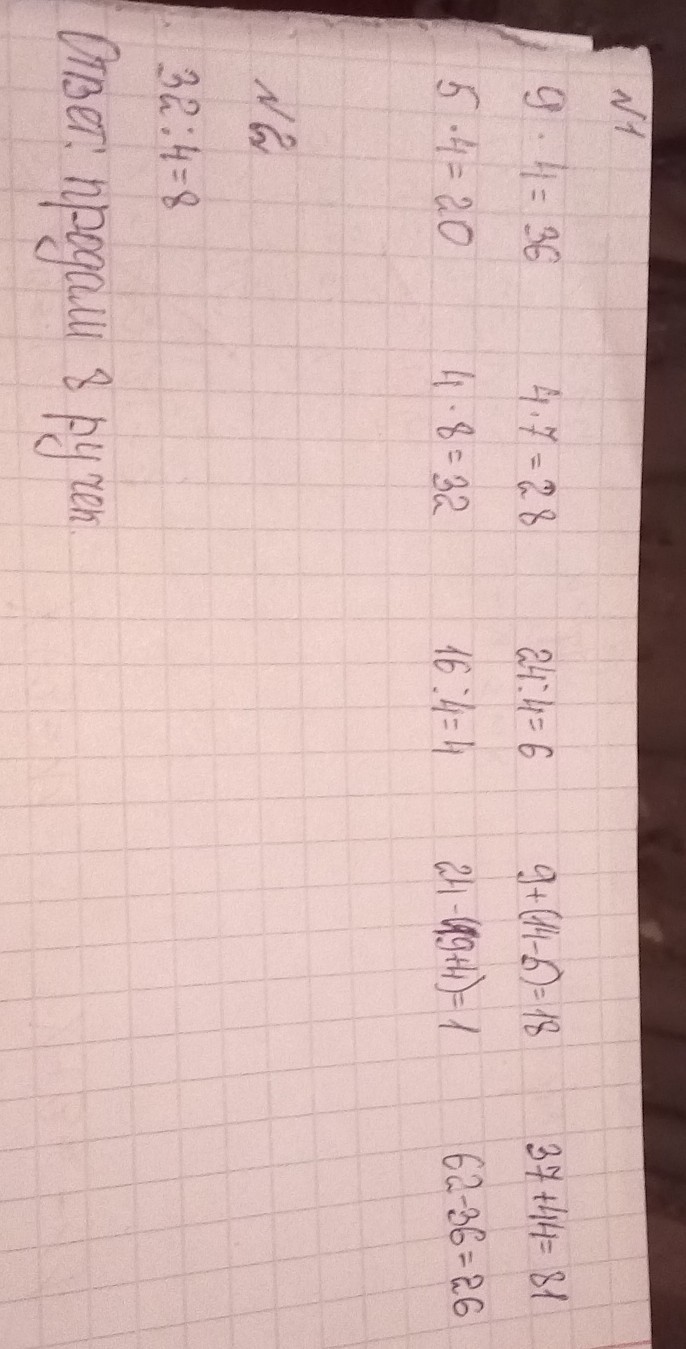 N1
9 · 4 = 36 4 · 7 = 28 24 : 4 = 6 9+(14-5)=18 37+44=81
5 · 4 = 20 4 · 8 = 32 16 : 4 = 4 24-(19+4)=1 62-36=26
N2
32 : 4 = 8
Ответ: продали 8 ручек.